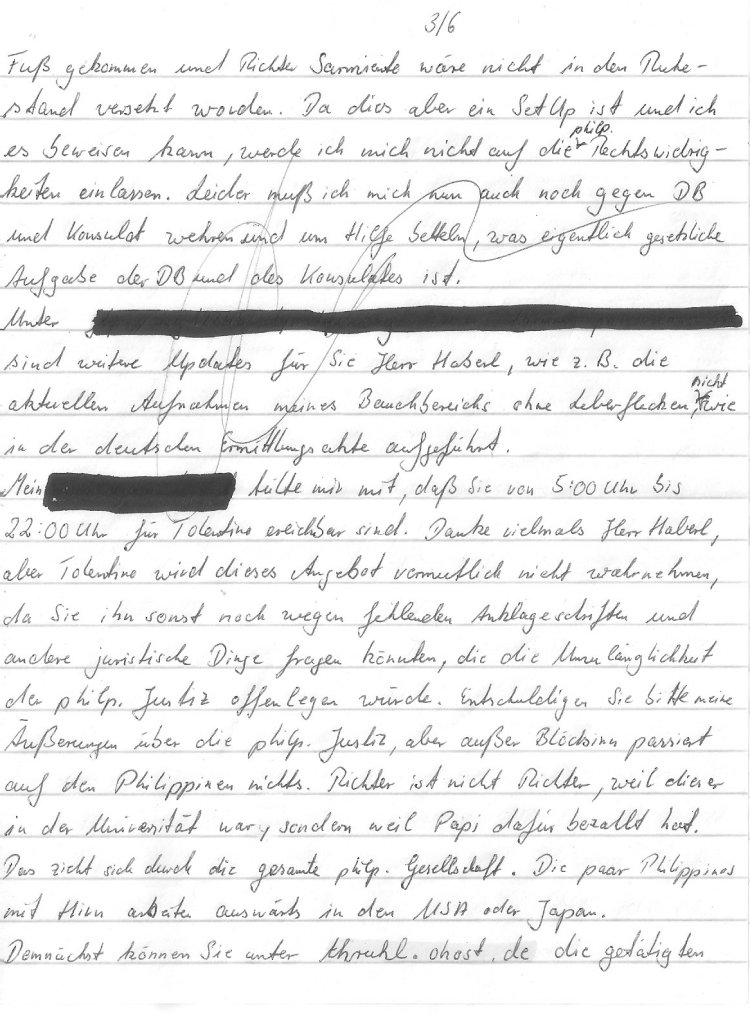 3/6
Fuß gekommen und Richter Sarmiento wäre nicht in den Ruhe-
stand versetzt worden. Da dies aber ein SetUp ist und ich
philp.
es beweisen kann, werde ich mich nicht auf die Rechtswidrig-
keiten einlassen. Leider muß ich mich nun auch noch gegen DB
und Konsulat wehren und um Hilfe betteln, was eigentlich gesetzliche
Aufgabe der DB und des Konsulates ist.
Unter
sind weitere Updates für Sie Herr Haberl, wie z.B. die
nicht
aktuellen Aufnahmen meines Bauchbereichs ohne Leberflecken, wie
in der deutschen Ermittlungsakte aufgeführt.
Mein teilte mir mit, daß Sie von 5:00 Uhr bis
22:00 Uhr für Tolentino ereichbar sind. Danke vielmals Herr Haberl,
aber Tolentino wird dieses Angebot vermutlich nicht wahrnehmen,
da Sie ihn sonst noch wegen fehlenden Anklageschriften und
andere juristische Dinge fragen könnten, die die Unzulänglichkeit
der philp. Justiz offenlegen würde. Entschuldigen Sie bitte meine
Äußerungen über die philp. Justiz, aber außer Blödsinn passiert
auf den Philippinen nichts. Richter ist nicht Richter, weil dieser
in der Universität war, sondern weil Papi dafür bezallt hat.
Das zieht sich durch die gesamte philp. Gesellschaft. Die paar Philippinos
mit Hirn arbeiten auswärts in den USA oder Japan.
Demnächst können Sie unter thruhl.ohost.de die getätigten